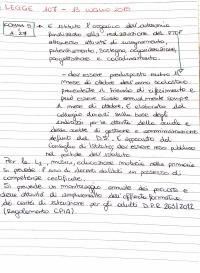 LEGGE 107 - 13 LUGLIO 2015
COMMA 5
È istituito l'organico dell'autonomia
funzionale alla realizzazione del PTOF
attraverso attività di insegnamento,
potenziamento, sostegno, organizzazione,
progettazione e coordinamento.
- dev'essere predisposto entro il
mese di ottobre dell'anno scolastico
precedente il triennio di riferimento e
può essere rivisto annualmente sempre
il mese di ottobre. È elaborato dal
collegio docenti sulla base degli
indirizzi per le attività della scuola e
delle scelte di gestione e amministrazione
definiti dal D.S. È approvato dal
Consiglio di Istituto; dev'essere reso pubblico
nel portale dell'istituto.
Per la L2, musica, educazione motoria nella primaria
si prevede l'uso di docenti abilitati in possesso di
competenze certificate.
Si prevede un monitoraggio annuale dei percorsi e
delle attività di ampliamento dell'offerta formativa
dei centri di istruzione per gli adulti D.P.R 263/2012
(Regolamento CPIA).